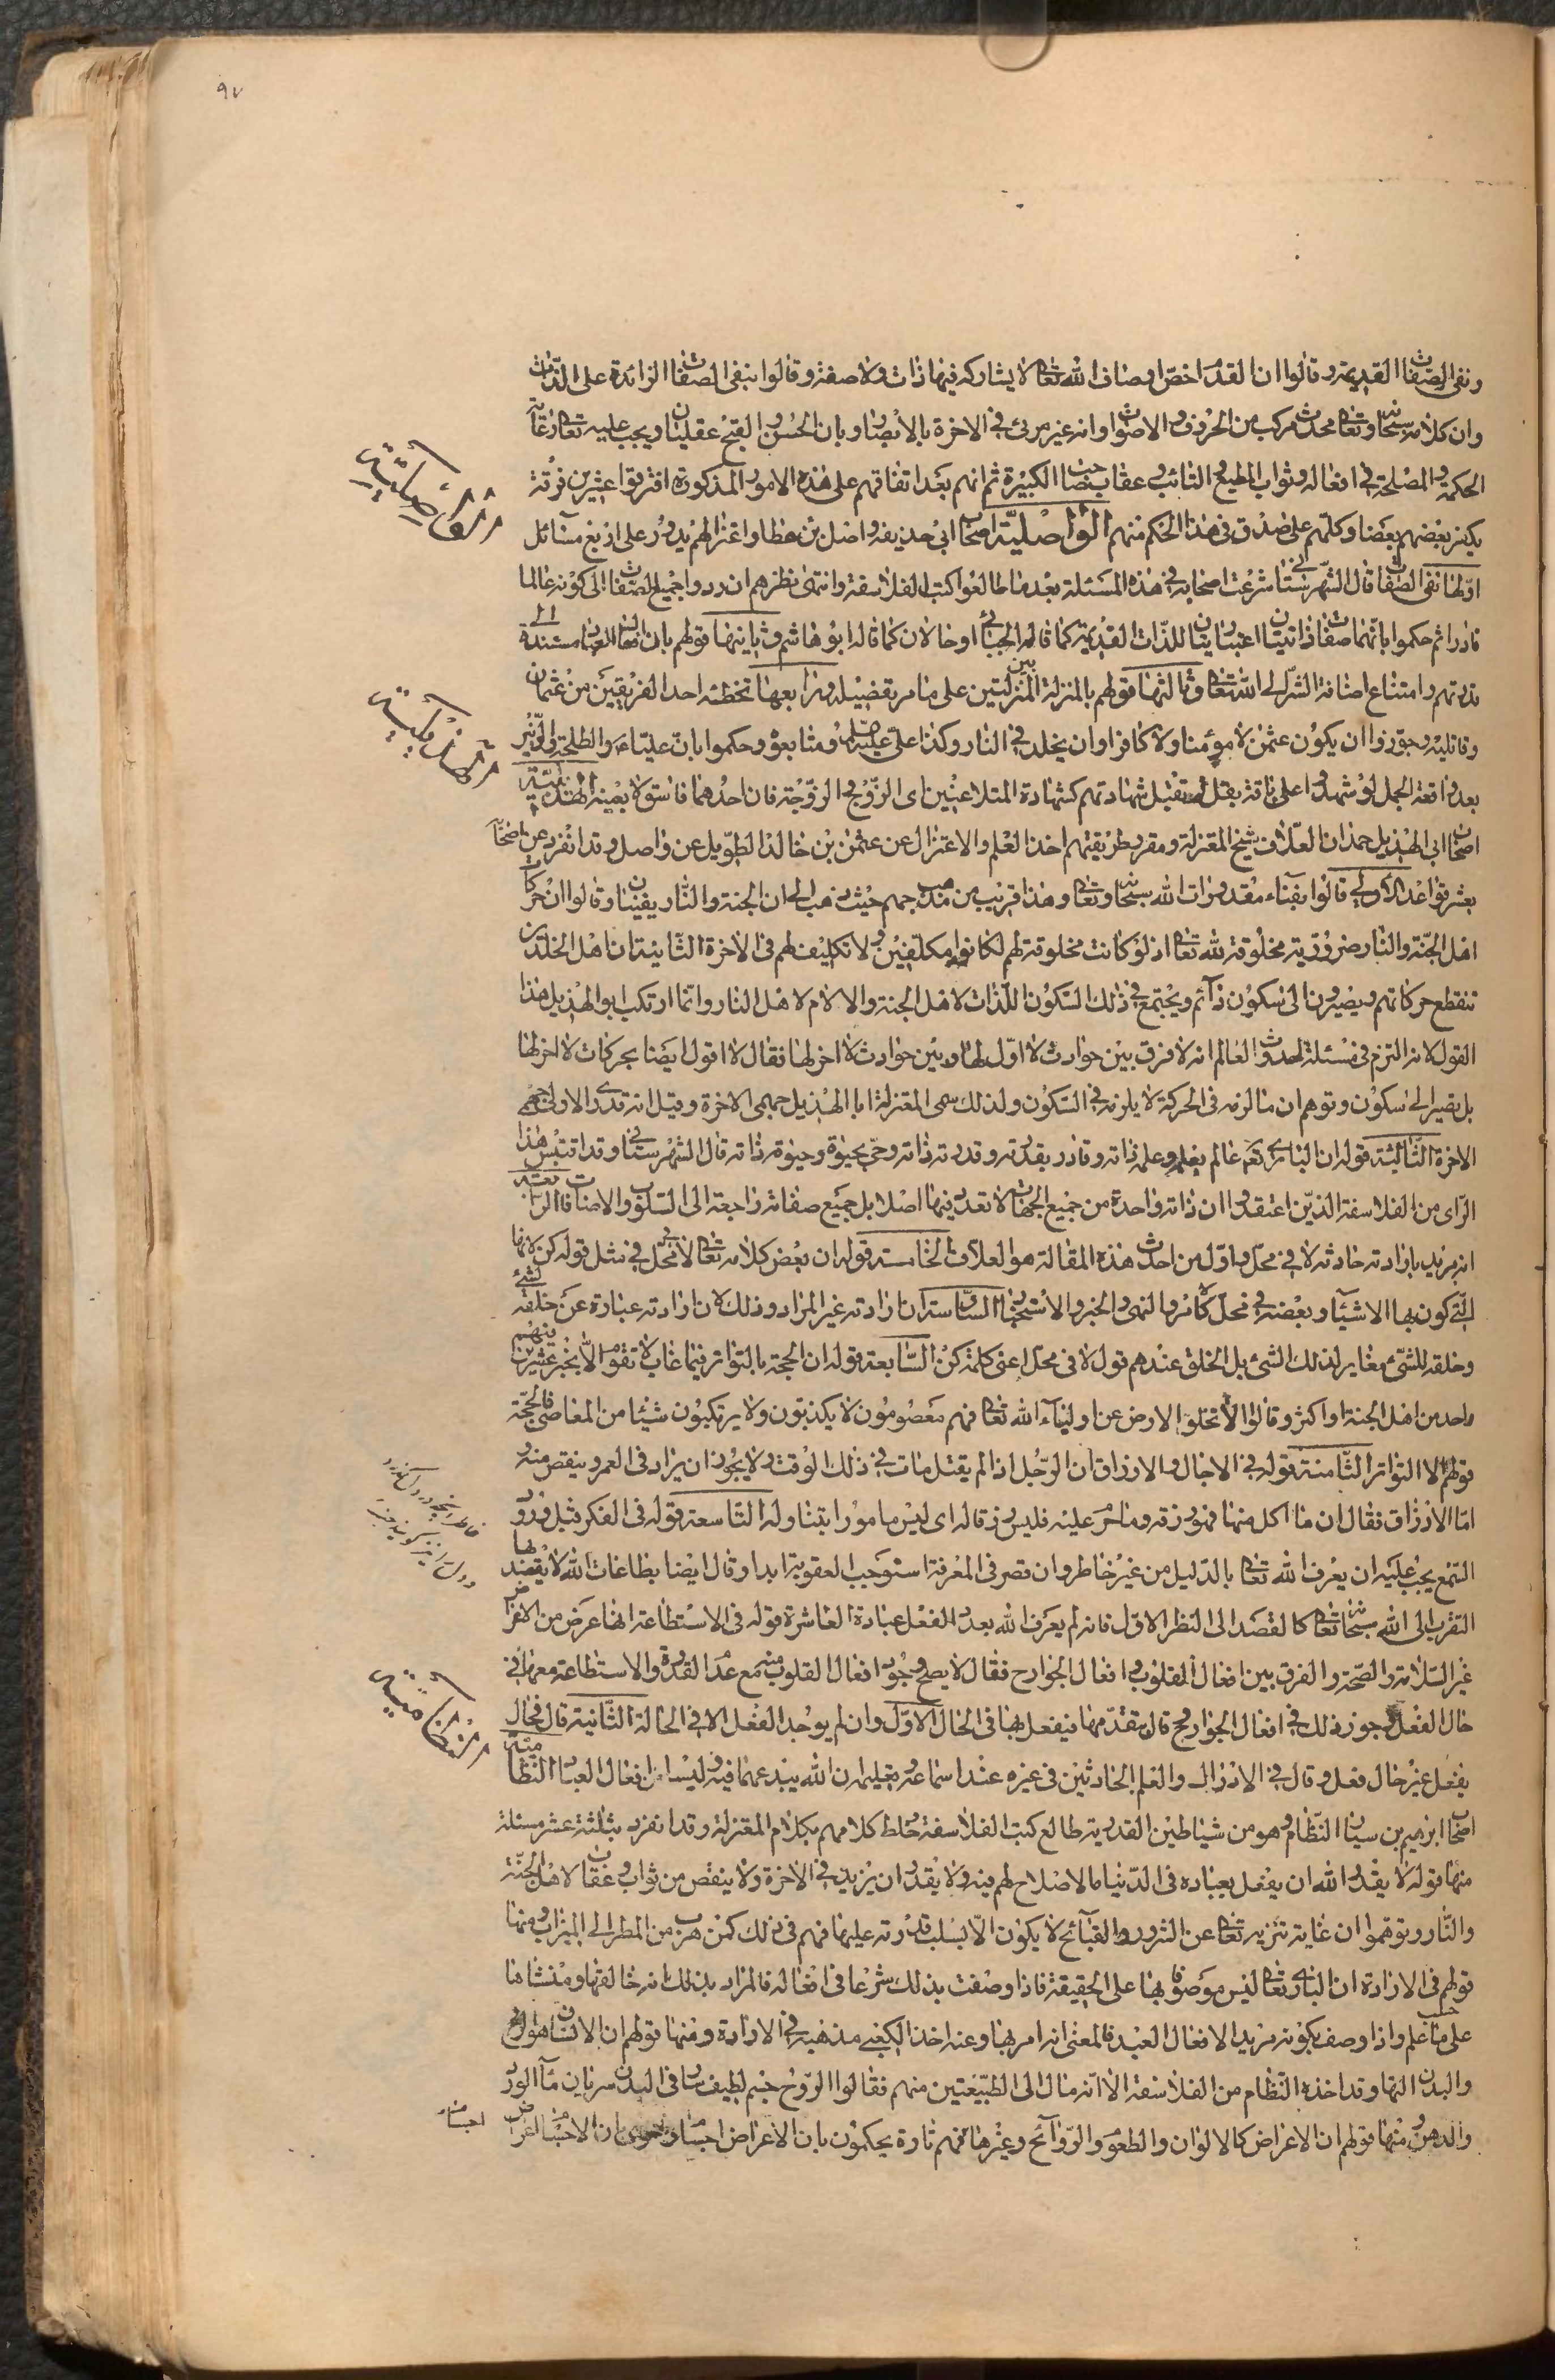 ٩٧
ونفى الصفات القديمة وقالوا ان القدم اخص اوصاف الله تعالى لا يشاركه فيها ذات ولا صفة وقالوا بنفى الصفات الزائدة على الذات
وان كلامه سبحانه وتعالى محدث مركب من الحروف والاصوات وانه غير مرئى فى الاخرة بالابصار وبان الحسن والقبح عقليان ويجب عليه تعالى رعاية
الحكمة والمصلحة فى افعاله وثواب المطيع والتائب وعقاب صاحب الكبيرة ثم انهم بعد اتفاقهم على هذه الامور المذكورة افترقوا عشرين فرقة
يكفر بعضهم بعضا وكلهم على صدق فى هذا الحكم منهم الواصلية اصحاب ابى حذيفة واصل بن عطا واعتزالهم يدور على اربع مسائل
اولها نفى الصفات قال الشهرستانى شرعت اصحابه فى هذه المسئلة بعد ما طالعوا كتب الفلاسفة وانتهى نظرهم ان ردوا جميع الصفات الى كونه عالما
قادرا ثم حكموا بانهما صفتان ذاتيتان اعتباريتان للذات القديمة كما قاله الجبائى او حالان كما قاله ابو هاشم وثانيتها قولهم بان افعال العباد مستندة الى
قدرتهم وامتناع اضافة الشر الى الله تعالى وثالثتها قولهم بالمنزلة بين المنزلتين على ما مر تفصيله ورابعها تخطئة احد الفريقين من عثمان
وقاتليه وجوزوا ان يكون عثمن لا مؤمنا ولا كافرا وان يخلد فى النار وكذا على عليه ومتابعوه وحكموا بان عليا والطلحة والزبير
بعد واقعة الجمل لو شهدوا على باقة بقل لم تقبل شهادتهم كشهادة المتلاعنين اى الزوج والزوجة فان احدهما فاسق لا بعينه الهذيلية
اصحاب ابى الهذيل حمدان العلاف شيخ المعتزلة ومقرر طريقتهم اخذ العلم والاعتزال عن عثمن بن خالد الطويل عن واصل وقد انفرد عن اصحابه
بعشر قواعد الاولى قالوا بفناء مقدورات الله سبحانه وتعالى وهذا قريب من مذهب جهم حيث ذهب الى ان الجنة والنار يفنيان وقالوا ان حركات
اهل الجنة والنار ضرورية مخلوقة لله تعالى اذ لو كانت مخلوقة لهم لكانوا مكلفين ولا تكليف لهم فى الاخرة الثانية ان اهل الخلدين
تنقطع حركاتهم ويصيرون الى سكون دائم ويجتمع فى ذلك السكون اللذات لاهل الجنة والالام لاهل النار وانما ارتكب ابو الهذيل هذا
القول لانه التزم فى مسئلة حدوث العالم انه لا فرق بين حوادث لا اول لها وبين حوادث لا اخر لها فقال لا اقول ايضا بحركات لا اخر لها
بل يصير الى سكون وتوهم ان ما لزمه فى الحركة لا يلزمه فى السكون ولذلك سمى المعتزلة ابا الهذيل جهمى الاخرة وقيل انه قدرى الاولى جهمى
الاخرة الثالثة قوله ان البارى تعالى عالم بعلم وعلمه ذاته وقادر بقدرته وقدرته ذاته وحى بحيوة وحيوته ذاته قال الشهرستانى وقد اقتبس هذا
الراى من الفلاسفة الذين اعتقدوا ان ذاته واحدة من جميع الجهات لا تعدد فيها اصلا بل جميع صفاته راجعة الى السلوب والاضافات الرابعة
انه مريد بارادته حادثة لا فى محل واول من احدث هذه المقالة هو العلاف الخامسة قوله ان بعض كلامه تعالى لا فى محل فى مثل قوله كن لانها
التى كون بها الاشياء وبعضه فى محل كالامر والنهى والخبر والاستخبار السادسة ان ارادته غير المراد وذلك لان ارادته عبارة عن خلقه لشئ
وخلقه للشئ مغاير لذلك الشئ بل الخلق عندهم قول لا فى محل اعنى كلمة كن السابعة قوله ان الحجة بالتواتر فيما غاب لا تقوم الا بخبر عشرين فيهم
واحد من اهل الجنة او اكثر وقالوا لا تخلو الارض عن اولياء الله تعالى فهم معصومون لا يكذبون ولا يرتكبون شيئا من المعاصى فالحجة
قولهم لا التواتر الثامنة قوله فى الاجال والارزاق ان الرجل اذا لم يقتل مات فى ذلك الوقت ولا يجوز ان يزاد فى العمر وينقص منه
اما الارزاق فقال ان ما اكل منها فهو رزقه وما حرم عليه فليس رزقا له اى ليس مامورا بتناوله التاسعة قوله فى الفكر قبل ورود
السمع يجب عليه ان يعرف الله تعالى بالدليل من غير خاطر وان قصر فى المعرفة استوجب العقوبة ابدا وقال ايضا بطاعات الله لا يقصد بها
التقرب الى الله سبحانه تعالى كالقصد الى النظر الاول فانه لم يعرف الله بعد والفعل عبادة العاشرة قوله فى الاستطاعة انها عرض من الاعراض
غير السلامة والصحة والفرق بين افعال القلوب وافعال الجوارح فقال لا يصح وجود افعال القلوب منه مع عدم القدرة والاستطاعة معها فى
حال الفعل وجوز ذلك فى افعال الجوارح قال بتقدمها فيفعل بها فى الحال الاول وان لم يوجد الفعل الا فى الحالة الثانية قال فحال
يفعل غير حال فعل وقال فى الادراك والعلم الحادثين فى غيره عند اسماعه وتعليمه ان الله يبدعهما فيه وليسا من افعال العباد النظامية
اصحاب ابرهيم بن سيار النظام وهو من شياطين القدرية طالع كتب الفلاسفة وخلط كلامهم بكلام المعتزلة وقد انفرد بثلثة عشر مسئلة
منها قوله لا يقدر الله ان يفعل بعباده فى الدنيا ما لا صلاح لهم فيه ولا يقدر ان يزيد فى الاخرة ولا ينقص من ثواب وعقاب لاهل الجنة
والنار وتوهموا ان غاية تنزيهه تعالى عن الشرور والقبائح لا يكون الا بسلب قدرته عليها فهم فى ذلك كمن هرب من المطر الى الميزاب ومنها
قولهم فى الارادة ان البارى تعالى ليس موصوفا بها على الحقيقة فاذا وصفت بذلك شرعا فى افعاله فالمراد بذلك انه خالقها ومنشاها
على حسب ما علم واذا وصف بكونه مريدا لافعال العبد فالمعنى انه امر بها وعنه اخذ الكعبى مذهبه فى الارادة ومنها قولهم ان الانسان هو الروح
والبدن التها وقد اخذه النظام من الفلاسفة الا انه مال الى الطبيعتين منهم فقالوا الروح جسم لطيف سار فى البدن سريان ماء الورد
والدهن ومنها قولهم ان الاعراض كالالوان والطعوم والروائح وغيرها فهم تارة يحكمون بان الاعراض اجسام واخرى ان الاجسام اعراض
الواصلية
الهذيلية
النظامية
اجسام